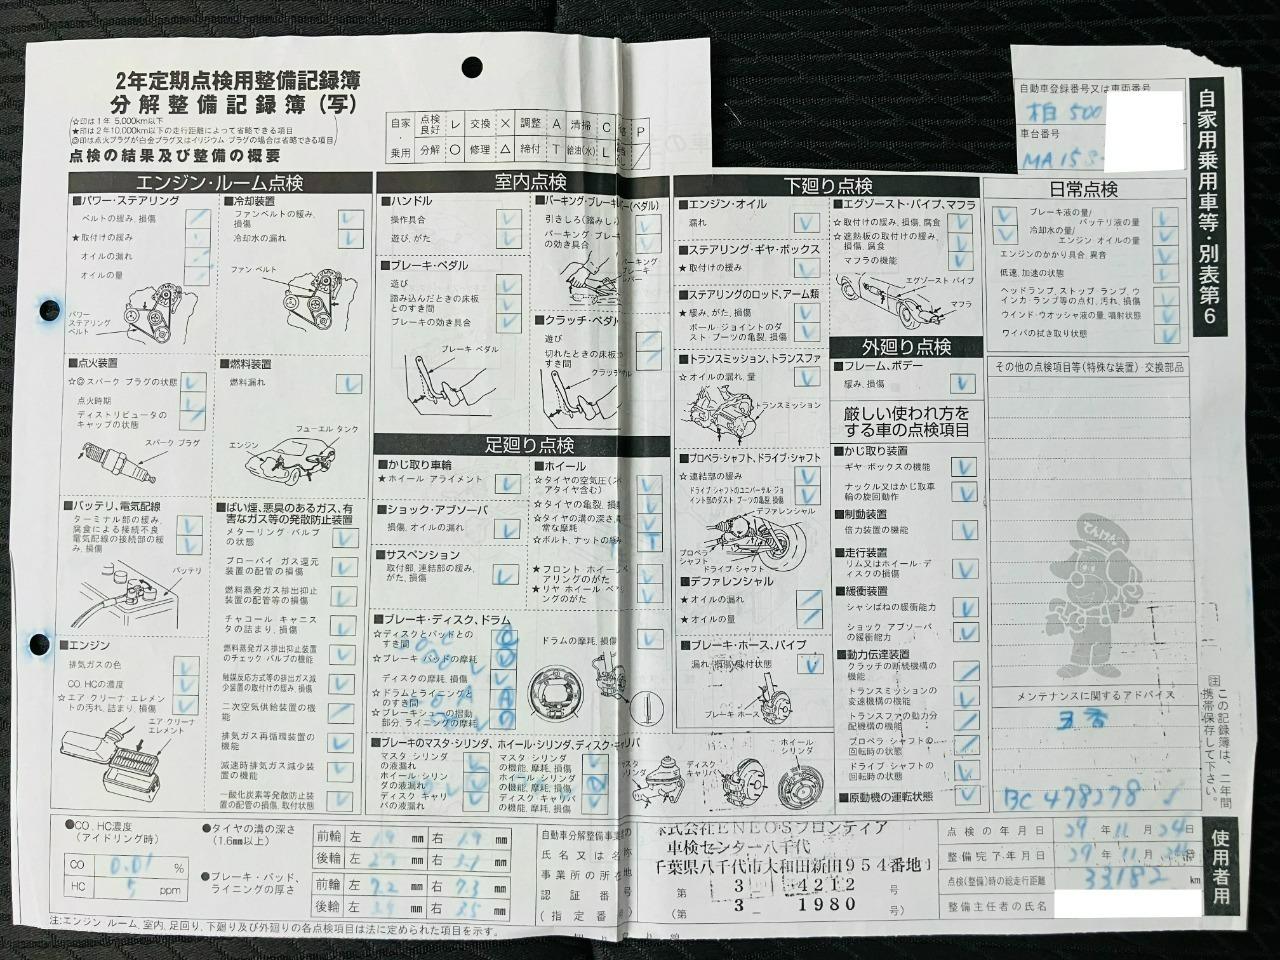 2年定期点検用整備記録簿
分解整備記録簿(写)
☆印は1年 5,000km以下
★印は2年10,000km以下の走行距離によって省略できる項目
◎印は点火プラグが白金プラグ又はイリジウム プラグの場合は省略できる項目
点検の結果及び整備の概要
自家・乗用
点検良好 レ 交換 × 調整 A 清掃 C P
分解 ○ 修理 △ 締付 T 給油(水) L
自動車登録番号又は車両番号
柏 500
車台番号
MA15S-
自家用乗用車等・別表第6
エンジン・ルーム点検
■パワー・ステアリング
ベルトの緩み、損傷
★取付けの緩み
オイルの漏れ
オイルの量
パワー ステアリング ベルト
■冷却装置
ファンベルトの緩み、損傷
冷却水の漏れ
ファン・ベルト
■点火装置
☆◎スパーク プラグの状態
点火時期
ディストリビュータのキャップの状態
スパーク プラグ
■燃料装置
燃料漏れ
フューエル タンク
エンジン
■バッテリ、電気配線
ターミナル部の緩み、腐食による接続不良
電気配線の接続部の緩み、損傷
バッテリ
■ばい煙、悪臭のあるガス、有害なガス等の発散防止装置
メターリング・バルブの状態
ブローバイ ガス還元装置の配管の損傷
燃料蒸発ガス排出抑止装置の配管等の損傷
チャコール キャニスタの詰まり、損傷
燃料蒸発ガス排出抑止装置のチェック バルブの機能
触媒反応方式等の排出ガス減少装置の取付けの緩み、損傷
二次空気供給装置の機能
排気ガス再循環装置の機能
減速時排気ガス減少装置の機能
一酸化炭素等発散防止装置の配管の損傷、取付状態
■エンジン
排気ガスの色
CO、HCの濃度
☆エア クリーナ エレメントの汚れ、詰まり、損傷
エア・クリーナ エレメント
室内点検
■ハンドル
操作具合
遊び、がた
■ブレーキ・ペダル
遊び
踏み込んだときの床板とのすき間
ブレーキの効き具合
ブレーキ ペダル
引きしろ(踏みしろ)
の効き具合
■クラッチ・ペダル
遊び
切れたときの床板
すき間
足廻り点検
■かじ取り車輪
★ホイール アライメント
■ショック・アブソーバ
損傷、オイルの漏れ
■サスペンション
取付部、連結部の緩み、がた、損傷
■ブレーキ・ディスク、ドラム
☆ディスクとパッドとのすき間
☆ブレーキ パッドの摩耗
ディスクの摩耗、損傷
☆ドラムとライニングとのすき間
☆ブレーキシューの摺動部分、ライニングの摩耗
ドラムの摩耗、損傷
■ホイール
☆タイヤの空気圧
アタイヤ含む)
☆タイヤの亀裂、損傷
☆タイヤの溝の深さ、
常な摩耗
☆ボルト、ナットの緩み
★フロント ホイール
アリングのがた
★リヤ ホイール ベア
ングのがた
■ブレーキのマスタ・シリンダ、ホイール・シリンダ、ディスク・キャリパ
マスタ シリンダの液漏れ
ホイール シリンダの液漏れ
ディスク キャリパの液漏れ
マスタ シリンダの機能、摩耗、損傷
ホイール シリンダの機能、摩耗、損傷
ディスク キャリパの機能、摩耗、損傷
ディスク キャリパ
ホイール シリンダ
下廻り点検
■エンジン・オイル
漏れ
■ステアリング・ギヤ・ボックス
★取付けの緩み
■ステアリングのロッド、アーム類
★緩み、がた、損傷
ボール・ジョイントのダスト・ブーツの亀裂、損傷
■トランスミッション、トランスファ
☆オイルの漏れ、量
トランスミッション
■プロペラ・シャフト、ドライブ・シャフト
☆連結部の緩み
ドライブ シャフトのユニバーサル ジョイント部のダスト ブーツの亀裂、損傷
デファレンシャル
プロペラ シャフト
ドライブ シャフト
■デファレンシャル
★オイルの漏れ
★オイルの量
■ブレーキ・ホース、パイプ
漏れ、損傷、取付状態
ブレーキ ホース
■エグゾースト・パイプ、マフラ
☆取付けの緩み、損傷、腐食
☆遮熱板の取付けの緩み、損傷、腐食
マフラの機能
エグゾースト パイプ
マフラ
外廻り点検
■フレーム、ボデー
緩み、損傷
厳しい使われ方をする車の点検項目
■かじ取り装置
ギヤ・ボックスの機能
ナックル又はかじ取車輪の旋回動作
■制動装置
倍力装置の機能
■走行装置
リム又はホイール・ディスクの損傷
■緩衝装置
シャシばねの緩衝能力
ショック アブソーバの緩衝能力
■動力伝達装置
クラッチの断続機構の機能
トランスミッションの変速機構の機能
トランスファの動力分配機構の機能
プロペラ シャフトの回転時の状態
ドライブ シャフトの回転時の状態
■原動機の運転状態
日常点検
ブレーキ液の量/バッテリ液の量
冷却水の量/エンジン・オイルの量
エンジンのかかり具合、異音
低速、加速の状態
ヘッドランプ、ストップ ランプ、ウインカ・ランプ等の点灯、汚れ、損傷
ウインド・ウオッシャ液の量、噴射状態
ワイパの拭き取り状態
その他の点検項目等(特殊な装置) 交換部品
てんけんくん
メンテナンスに関するアドバイス
BC 478278
注 この記録簿は、二年間携帯保存して下さい。
使用者用
●CO、HC濃度
(アイドリング時)
CO 0.01 %
HC 5 ppm
●タイヤの溝の深さ
(1.6mm以上)
前輪 左 mm 右 mm
後輪 左 mm 右 mm
●ブレーキ・パッド、ライニングの厚さ
前輪 左 7.2 mm 右 7.3 mm
後輪 左 mm 右 3.5 mm
自動車分解整備事業者の
氏名又は名称
事業所の所在地
認証番号
(指定番号
株式会社ENEOSフロンティア
車検センター八千代
千葉県八千代市大和田新田954番地
第 3 - 4212 号
(第 3 - 1980 号)
点検の年月日 29 年 11 月 24 日
整備完了年月日 29 年 11 月 24 日
点検(整備)時の総走行距離 33182 km
整備主任者の氏名
注:エンジン ルーム、室内、足廻り、下廻り及び外廻りの各点検項目は法に定められた項目を示す。